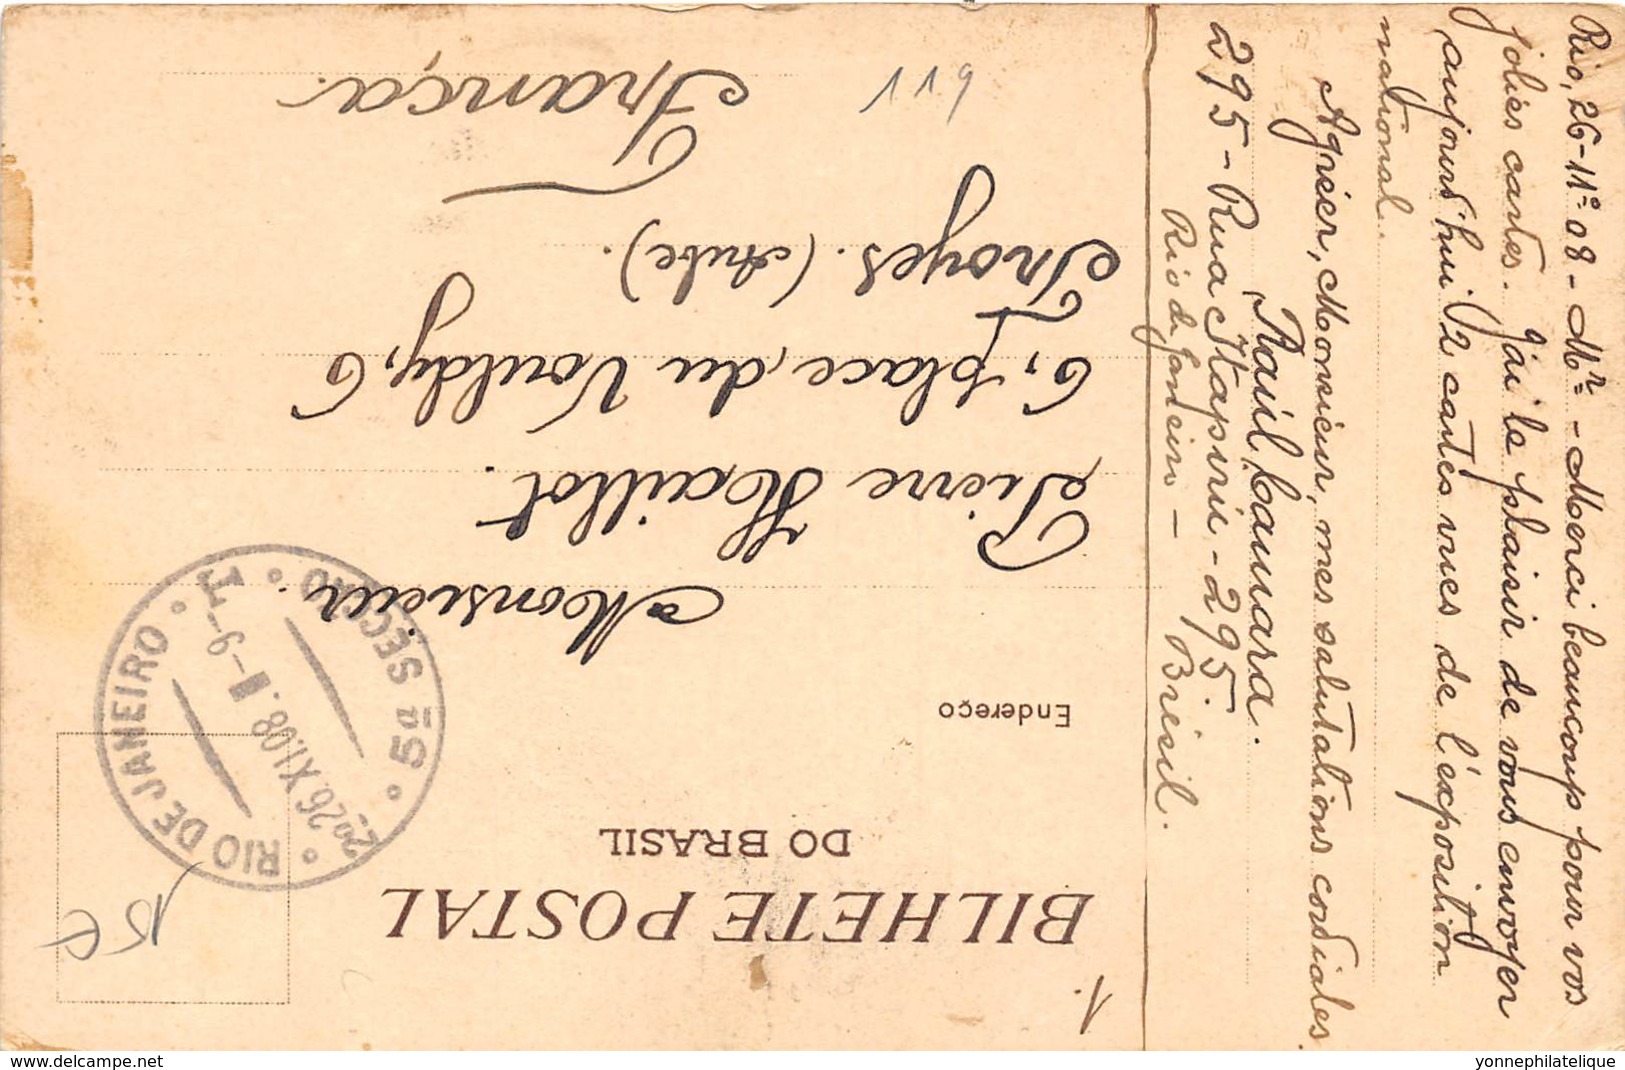 BILHETE POSTAL
DO BRASIL
Endereço
Monsieur
Pierre Maillot.
6, place du Vouldy, 6
Troyes. (Aube).
França.
119
1.
15€
RIO DE JANEIRO
5ª SECÇÃO
2º 26.XI.08. 1-9-T
Rio, 26-11º-08 - Mr. - Merci beaucoup pour vos
jolies cartes. J'ai le plaisir de vous envoyer
aujourd'hui 12 cartes vues de l'exposition
national.
Agréer, Monsieur, mes salutations cordiales.
Raúl Camara.
295 - Rua Itapirú - 295.
Rio de Janeiro - Brésil.
www.delcampe.net
yonnephilatelique